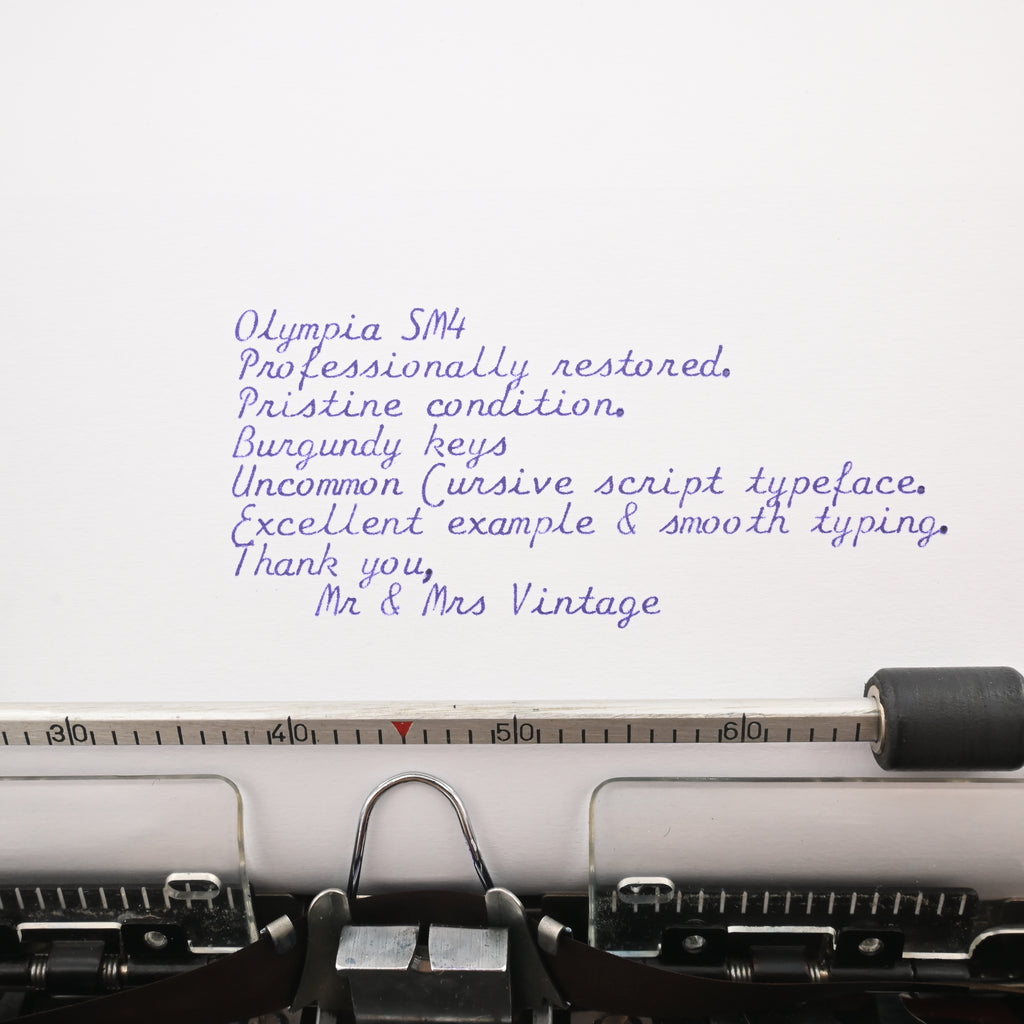 Olympia SM4
Professionally restored.
Pristine condition.
Burgundy keys
Uncommon Cursive script typeface.
Excellent example & smooth typing.
Thank you,
Mr & Mrs Vintage
30 40 50 60